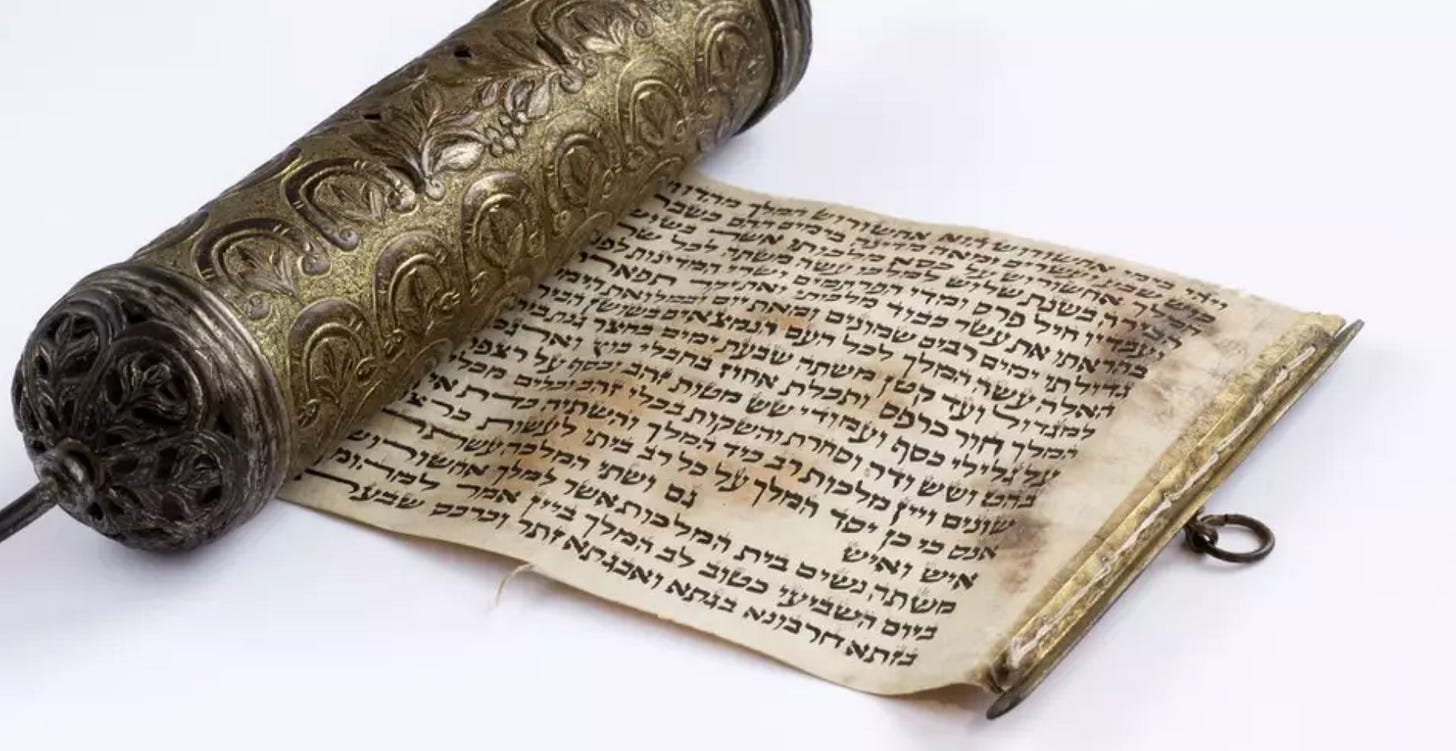 ויהי בימי אחשורוש הוא אחשורוש המלך מהדו
כוש שבע ועשרים ומאה מדינה בימים ההם כשבת
המלך אחשורוש על כסא מלכותו אשר
הבירה בשנת שלוש למלכו עשה משתה לכל
ועבדיו חיל פרס ומדי הפרתמים ושרי המדינות
בהראתו את עשר כבוד מלכותו ואת יקר
גדולתו ימים רבים שמונים ומאת יום ובמלואת
האלה עשה המלך לכל העם הנמצאים בשושן
למגדול ועד קטן משתה שבעת ימים בחצר גנת
המלך חור כרפס ותכלת אחוז בחבלי בוץ
על גלילי כסף ועמודי שש מטות זהב וכסף על
בהט ושש ודר וסחרת והשקות בכלי זהב וכלים מכלי
שונים ויין מלכות רב כיד המלך והשתיה כדת
אנס כי כן יסד המלך על כל רב ביתו לעשות
איש ואיש גם ושתי המלכה עשתה
משתה נשים בית המלכות אשר למלך
ביום השביעי כטוב לב המלך ביין אמר
בזתא חרבונא בגתא ואבגתא זתר וכרכס שבעת